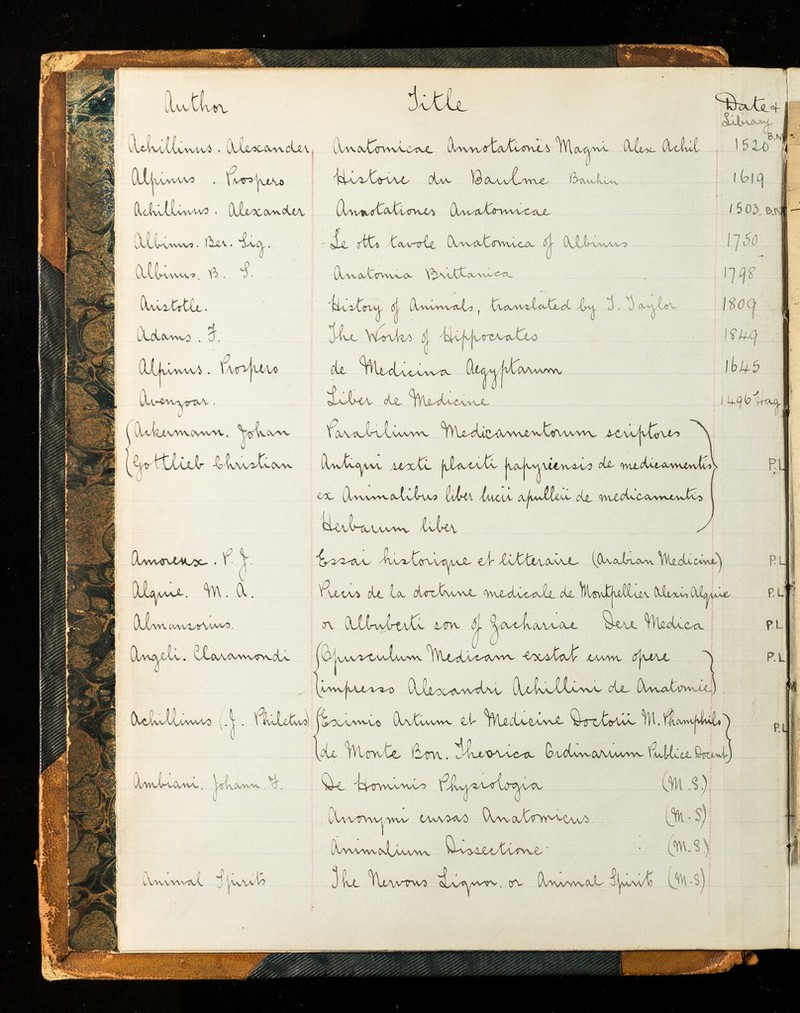 Author Title Date & Library
Achillinus. Alexander, Anatomicae Annotationes Magni Alex Achil 1520 B.M
Alpinus. Prospero Histoire du Baulme Bauhin 1619
Achillinus. Alexander Annotationes Anatomicae 1503. B.M
Albinus. Ber. Sig. Le otto tavole Anatomica of Albinus 1750
Albinus. B. S. Anatomia Brittanica 1798
Aristotle. History of Animals, translated by T. Taylor 1809
Adams. F. The Works of Hippocrates 1849
Alpinus. Prospero de Medicina Aegyptarum 1645
Avenzoar. Liber de Medicine 1496 Hag
Ackermann. Johan Parabilium Medicamentorum scriptores
Gottlieb Christian Antiqui sexti placiti papyriensis de medicamentis P.L
ex Animalibus liber lucii apulleii de medicamentis
Herbarum liber
Amoreux. P. J. Essai historique et litteraire (Arabian Medicine) P.L
Alquie. M. A. Precis de la doctrine medicale de Montpellier Alexis Alquie P.L
Almansorius. or Albuberti son of Zachariae Dere Medica P.L
Angeli. Claramondi Opusculum Medicam exstat cum opere P.L
impresso Alexandri Achillini de Anatomie
Achillinus (.J. Philetus) Eximio Artium et Medicine Doctorii M. Pamphilo P.L
de Monte Bon. Theorica Ordinarium Publice Docent
Ambiani. Johann. F. De Hominis Physiologia (M.S.)
Anonymi cursas Anatomicus (M.S)
Animalium Dissectione (M.S)
Animal Spirits The Nervous Liquor. or Animal Spirit (M.S)